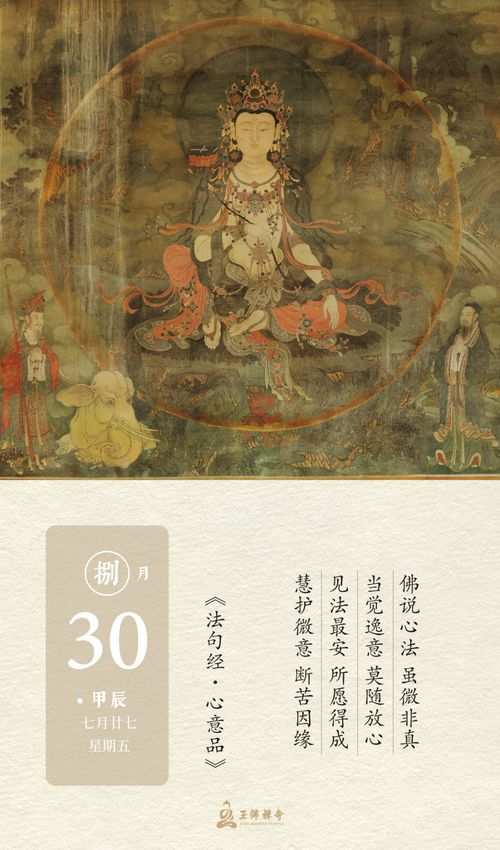 捌月
30
•甲辰
七月廿七
星期五
佛说心法 虽微非真
当觉逸意 莫随放心
见法最安 所愿得成
慧护微意 断苦因缘
《法句经·心意品》
玉佛禅寺
JADE BUDDHA TEMPLE